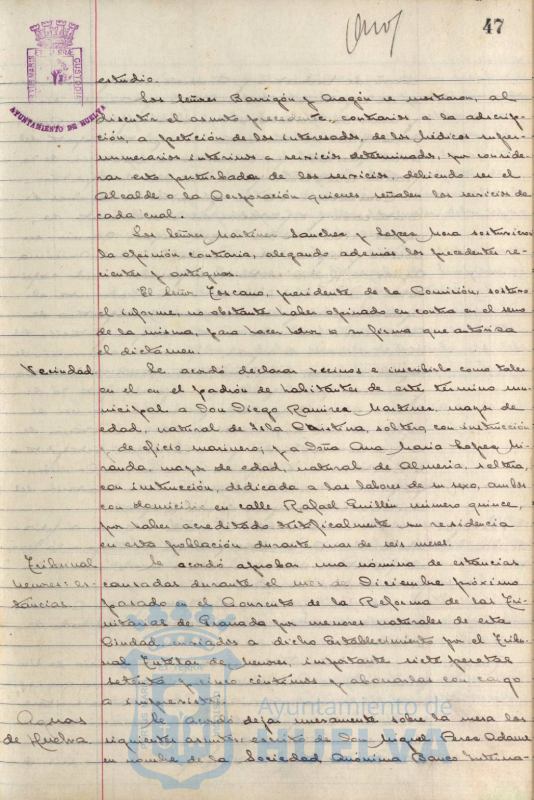 47
AYUNTAMIENTO DE HUELVA
estudio.
Los Señores Barrigón y Aragón se mostraron, al
discutir el asunto precedente, contrarios a la adscrip-
ción, a petición de los interesados, de los Médicos super-
numerarios interinos a servicios determinados, por conside-
rar esto perturbador de los servicios, debiendo ser el
Alcalde o la Corporación quienes señalen los servicios de
cada cual.
Los Señores Martínez Sanchez y Lopez Mora sostuvieron
la opinión contraria, alegando además los precedentes re-
cientes y antiguos.
El Señor Toscano, presidente de la Comisión, sostuvo
el informe, no obstante haber opinado en contra en el seno
de la misma, para hacer honor a su firma que autoriza
el dictámen.
Vecindad Se acordó declarar vecinos e inscribirlo como tales
en el en el padrón de habitantes de este término mu-
nicipal a Don Diego Ramirez Martinez, mayor de
edad, natural de Isla Cristina, soltero, con instrucción
y de oficio marinero; y a Doña Ana Maria Lopez Mi-
randa, mayor de edad, natural de Almeria, soltera,
con instrucción, dedicada a las labores de su sexo, ambos
con domicilio en calle Rafael Guillén número quince,
por haber acreditado su residencia
en esta población durante mas de seis meses.
Tribunal Se acordó aprobar una nómina de estancias
menores: es- causadas durante el mes de Diciembre próximo
tancias pasado en el Convento de la Reforma de las Tri-
nitarias de Granada por menores naturales de esta
Ciudad, enviados a dicho Establecimiento por el Tribu-
nal Tutelar de menores, importante siete pesetas
setenta y cinco céntimos y abonarlas con cargo
a imprevistos.
Aguas Se acordó dejar nuevamente sobre la mesa los
de Huelva siguientes asuntos: escrito de Don Miguel Perez Adame
en nombre de la Sociedad Anónima Banco
Ayuntamiento de
HUELVA